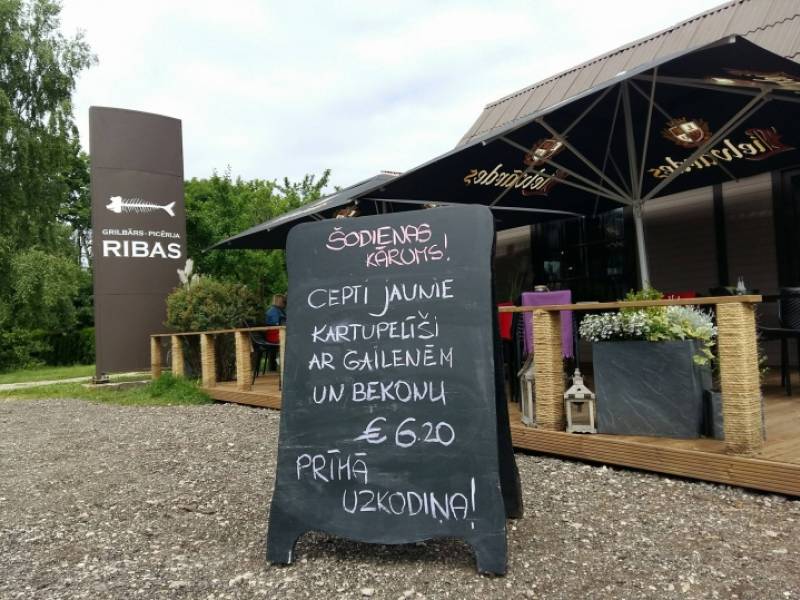 GRILBĀRS - PICĒRIJA
RIBAS
ŠODIENAS
KĀRUMS!
CEPTI JAUNIE
KARTUPELĪŠI
AR GAILENĒM
UN BEKONU
€ 6.20
PRĪMĀ
UZKODIŅA!
Mietvardes
Mietvardes